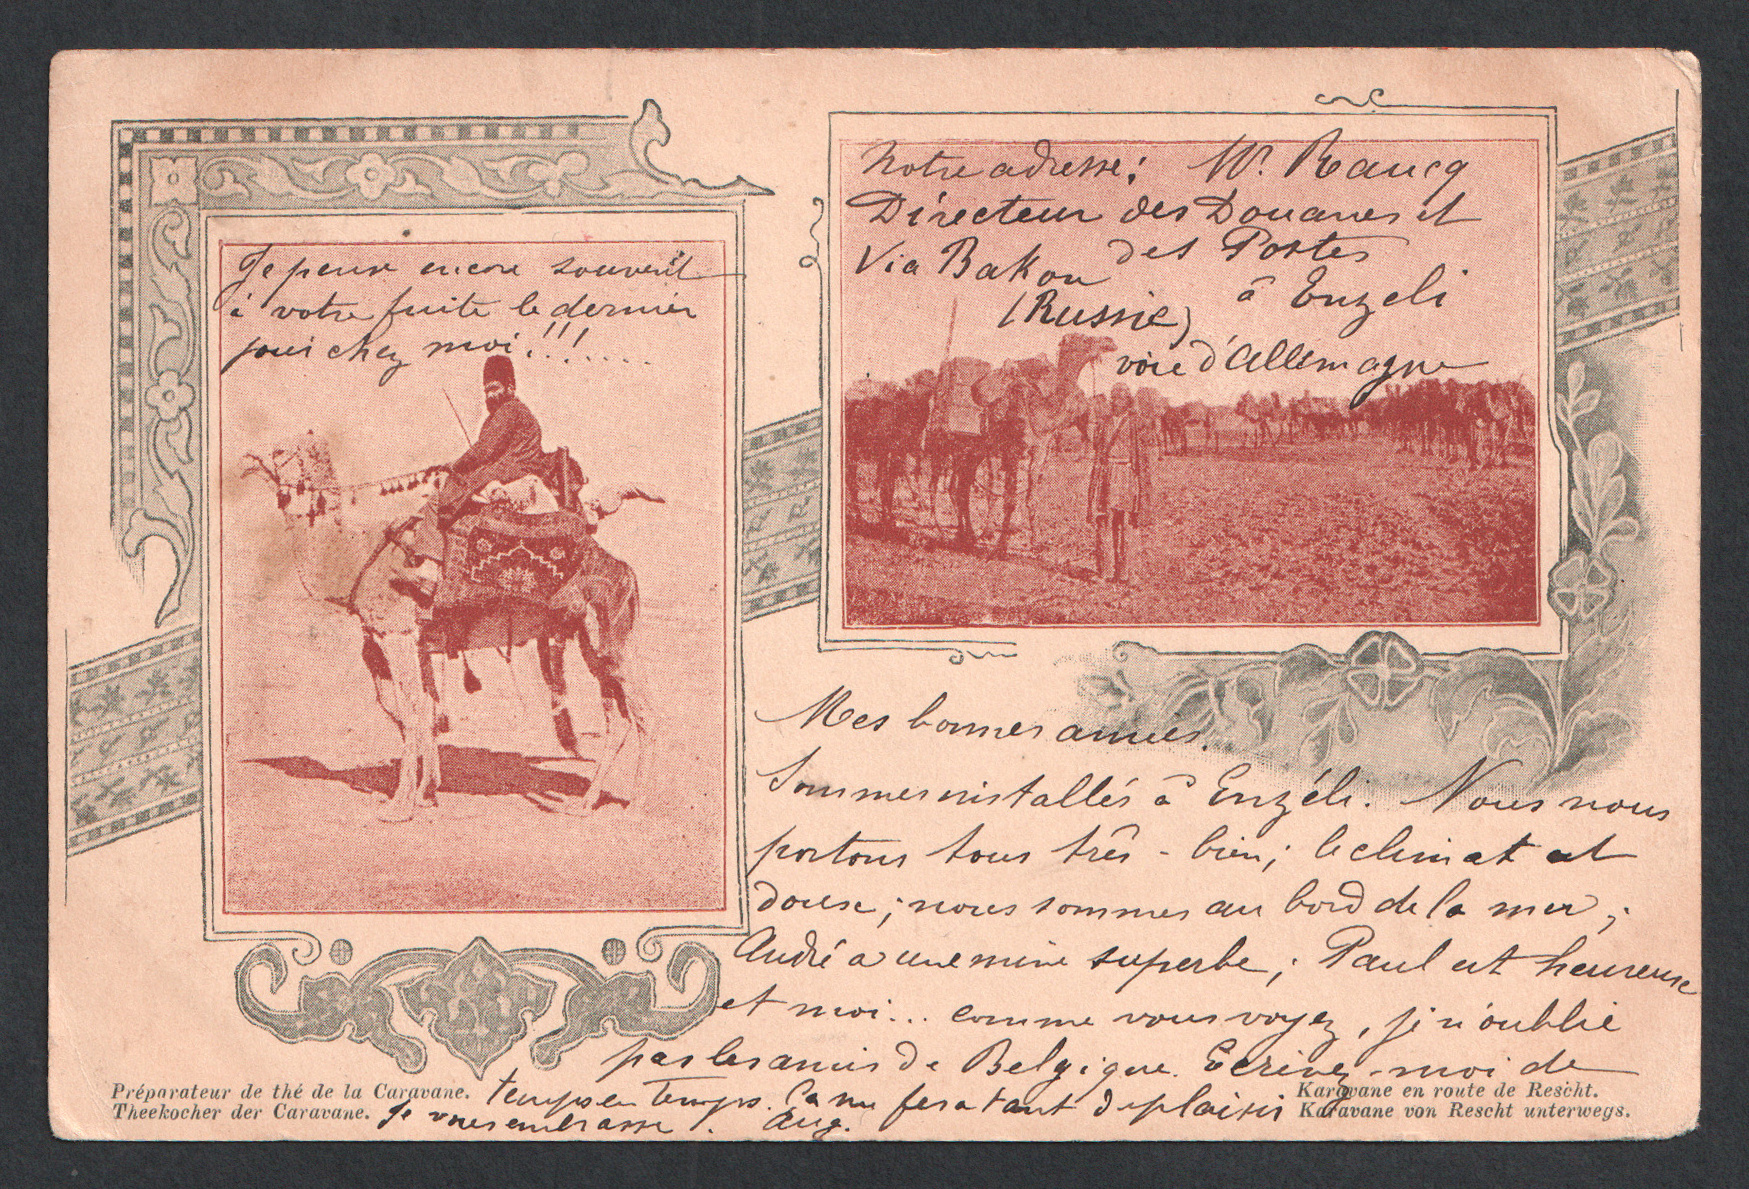 Je pense encore souvent
à votre fuite le dernier
jour chez moi!!!.....
Notre adresse: W. Raucq
Directeur des Douanes et
des Postes
Via Bakou
à Enzeli
(Russie)
voie d'Allemagne
Mes bonnes amies.
Sommes installés à Enzéli. Nous nous
portons tous très-bien; le climat est
doux; nous sommes au bord de la mer;
André a une mine superbe; Paul est heureux
et moi... comme vous voyez, je n'oublie
pas les amis de Belgique. Ecrivez-moi de
temps en temps. Ca me fera tant d plaisir
Je vous embrasse. Aug.
Préparateur de thé de la Caravane.
Theekocher der Caravane.
Karavane en route de Rescht.
Karavane von Rescht unterwegs.